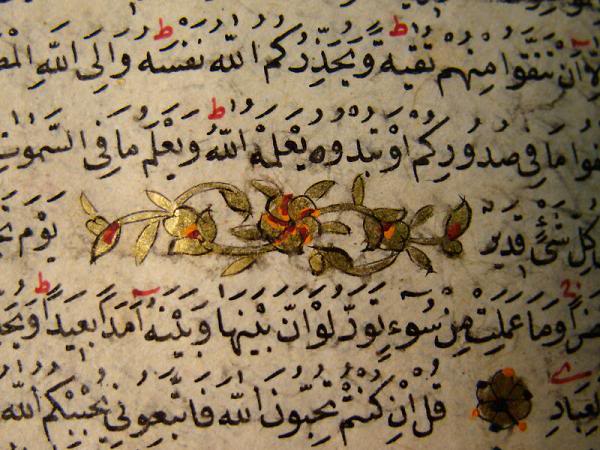 إِلَّا أَنْ تَتَّقُوا مِنْهُمْ تُقٰيةً ط وَيُحَذِّرُكُمُ اللّٰهُ نَفْسَهُ ط وَإِلَى اللّٰهِ
مَا فِي صُدُورِكُمْ أَوْ تُبْدُوهُ يَعْلَمْهُ اللّٰهُ ط وَيَعْلَمُ مَا فِي السَّمٰوٰتِ
كُلِّ شَيْءٍ قَدِيرٌ يَوْمَ
وَمَا عَمِلَتْ مِنْ سُوءٍ تَوَدُّ لَوْ أَنَّ بَيْنَهَا وَبَيْنَهُ أَمَدًا بَعِيدًا ط
بِالْعِبَادِ قُلْ إِنْ كُنْتُمْ تُحِبُّونَ اللّٰهَ فَاتَّبِعُونِي يُحْبِبْكُمُ اللّٰهُ